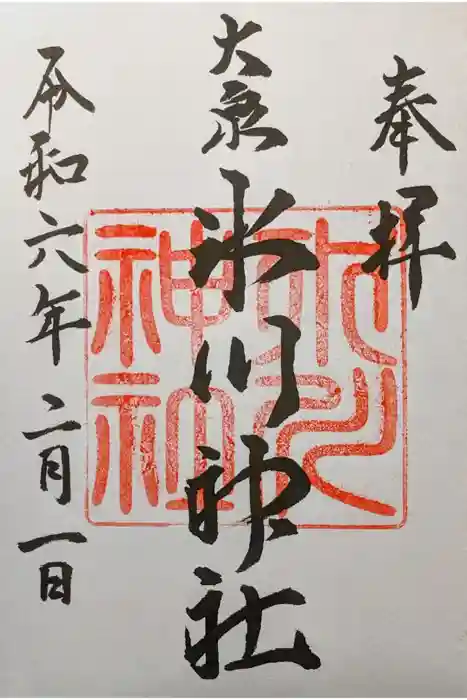 奉拝
大泉
氷川神社
令和六年 二月一日
氷川
神社